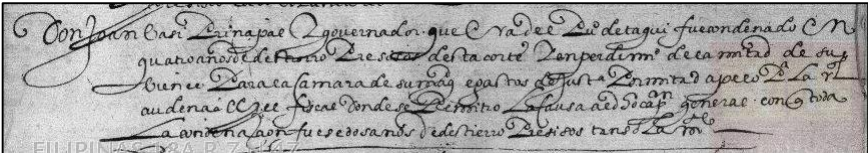 Don Joan basi Prinçipal y governador que era de el Puº de taqui fue condenado en
quatro años de destierro Preçisos desta corte y en perdimiº de la mitad de sus
bienes Para la camara de su magd e gastos de justª y en mitad apelo Pª la rl
audençia el fiscal donde se Remitio la causa al dho capan general con q toda
la condenaçion fuesse dos años de destierro Preçisos
FILIPINAS,18A,R.7,N.47